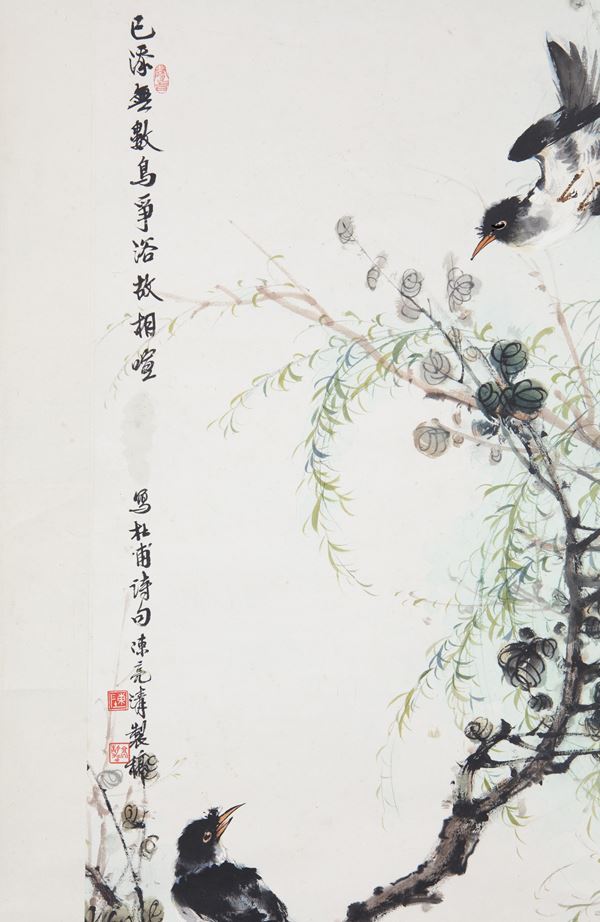 已添無數鳥爭浴故相喧
寫杜甫詩句陳亮清製